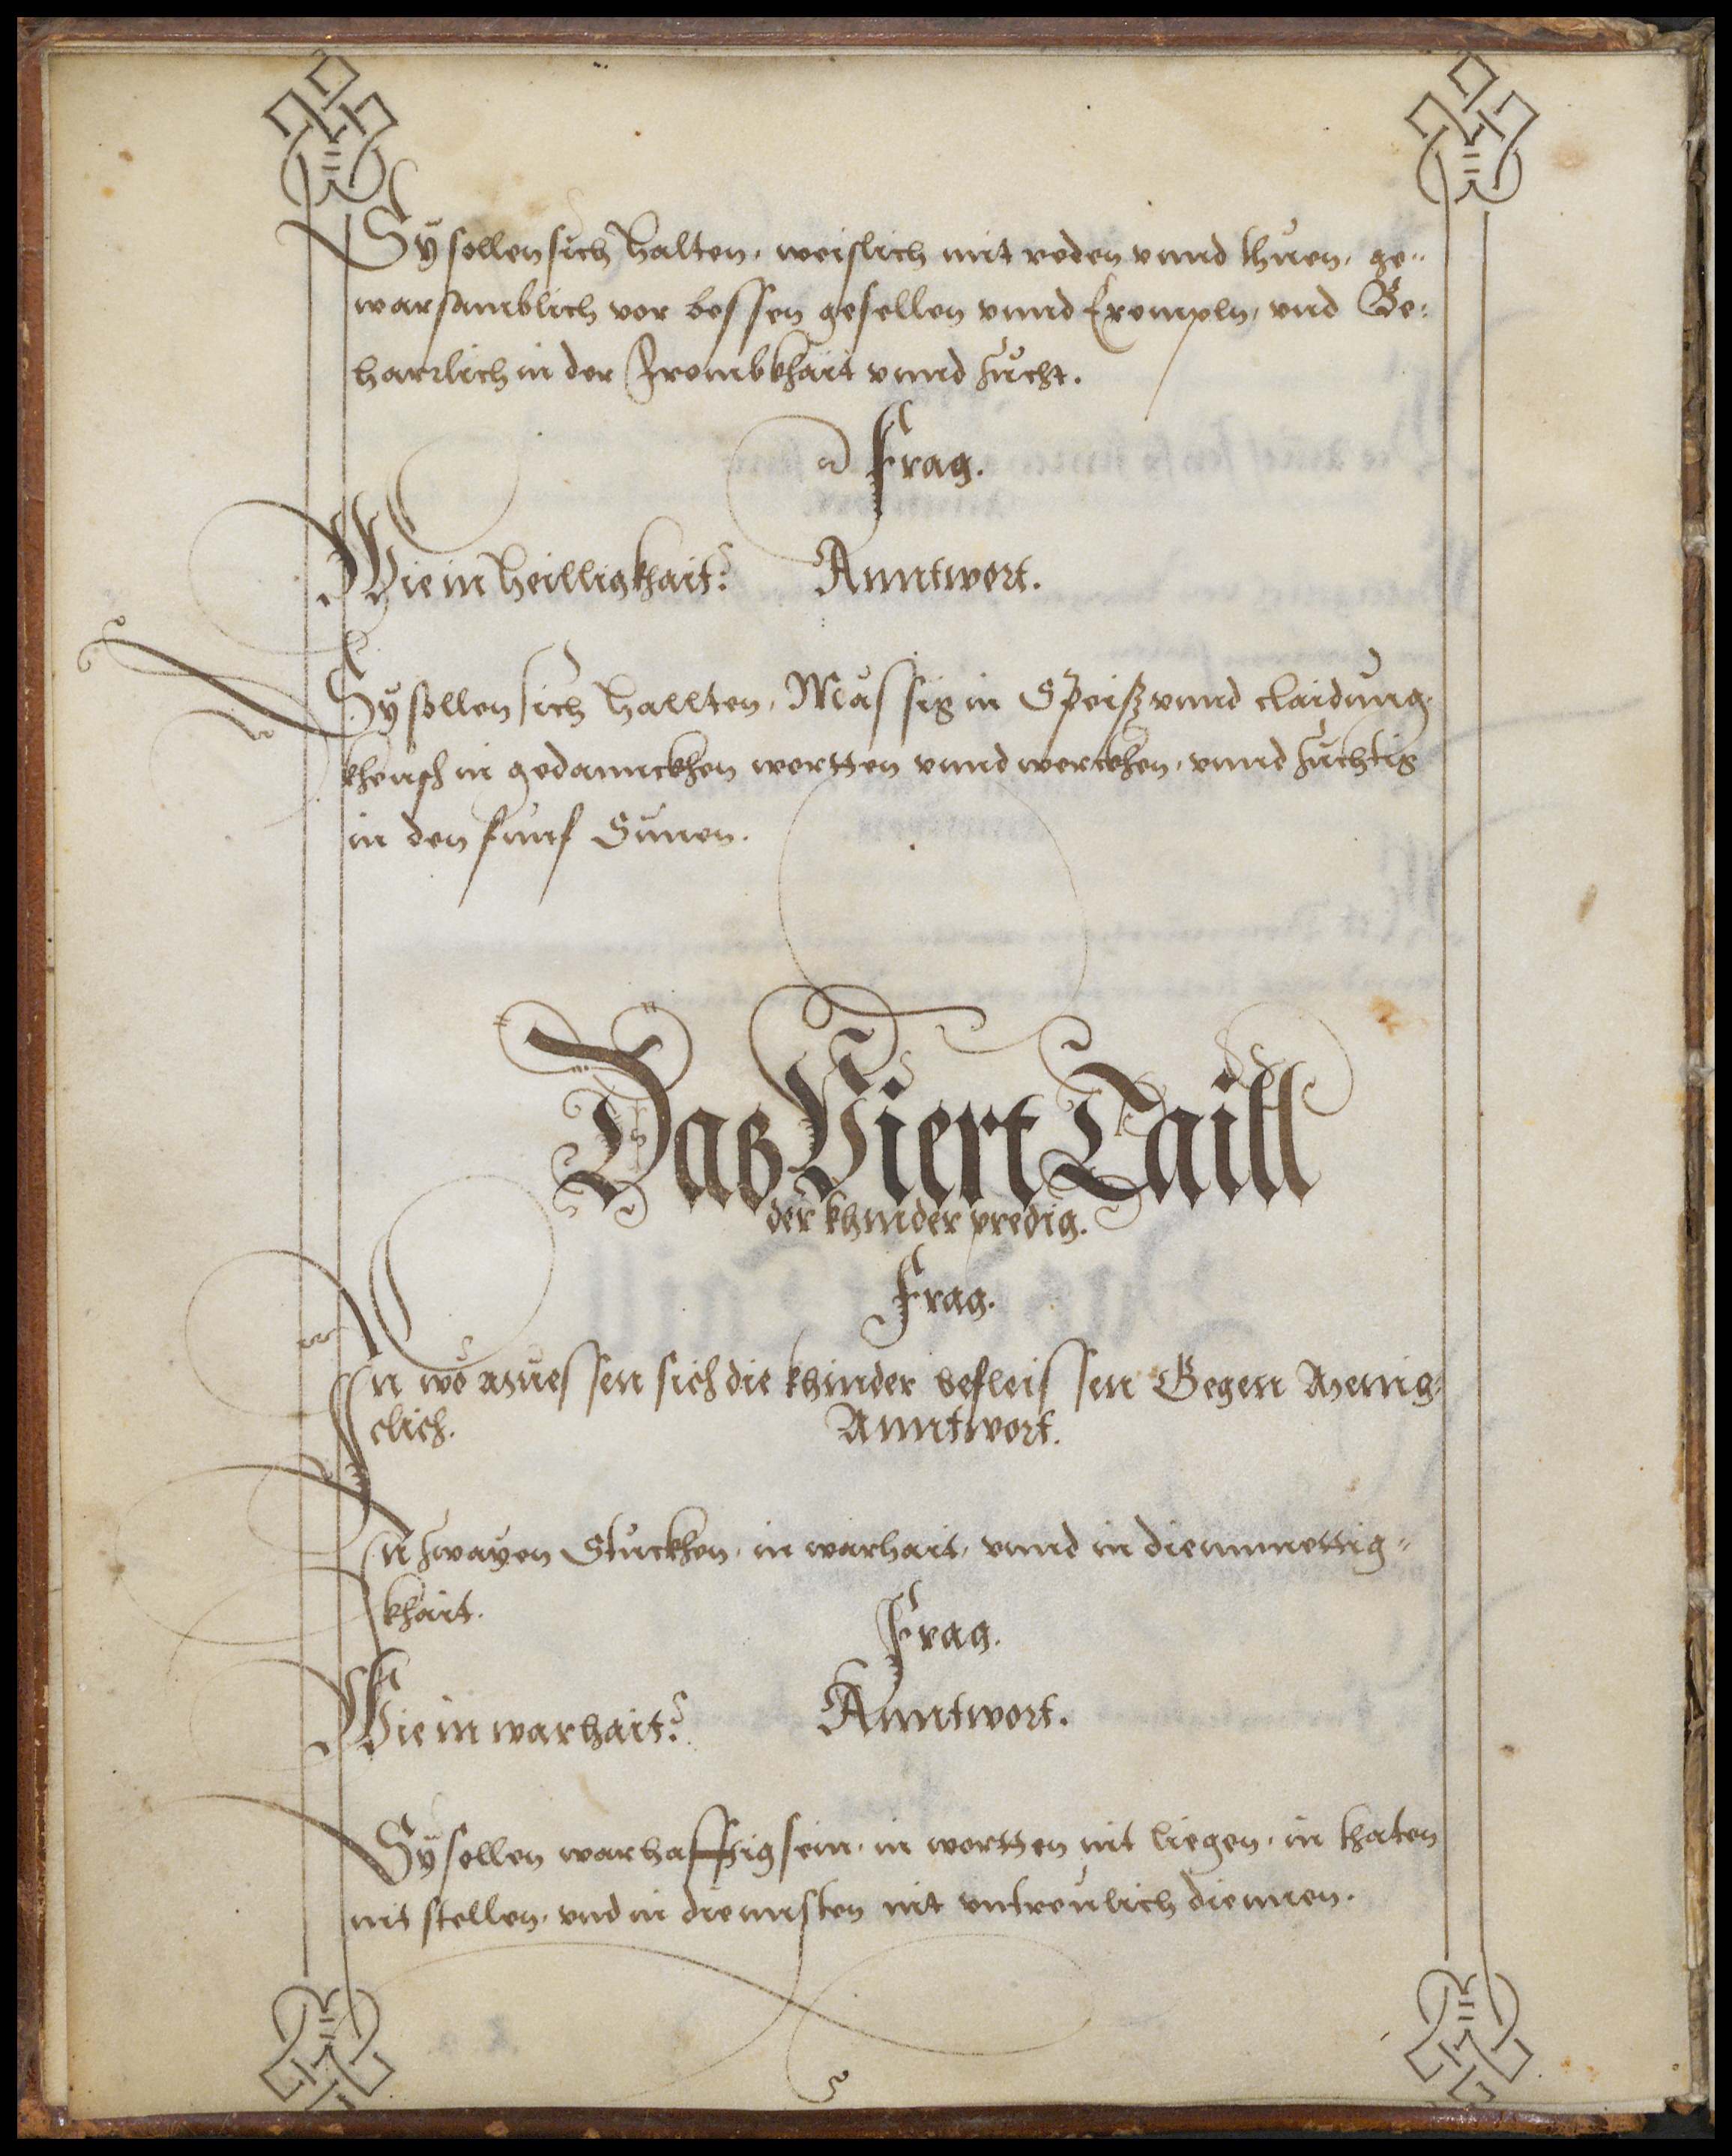 Sÿ sollen sich halten, weislich mit reden vnnd thuen, ge-
warsamblich vor bössen gesellen vnnd Exempln, vnd Be-
harrlich in der Frombkhait vnnd zucht.
Frag.
Wie in heilligkhait? Anntwort.
Sÿ sollen sich hallten, Mässig in Speiß vnnd claidung,
kheusch in gedannckhen wortten vnnd werckhen, vnnd züchtig
in den fünf Sinnen.
Das Viert Taill
der khinder predig.
Frag.
In wo müessen sich die khinder befleissen Gegen Menig-
clich. Anntwort.
In zwayen Stuckhen, in warhait, vnnd in diemuettig-
khait.
Frag.
Wie in warhait? Anntwort.
Sÿ sollen warhafftig sein, in wortten nit liegen, in thaten
nit stellen, vnd in diennsten nit vntreulich diennen.